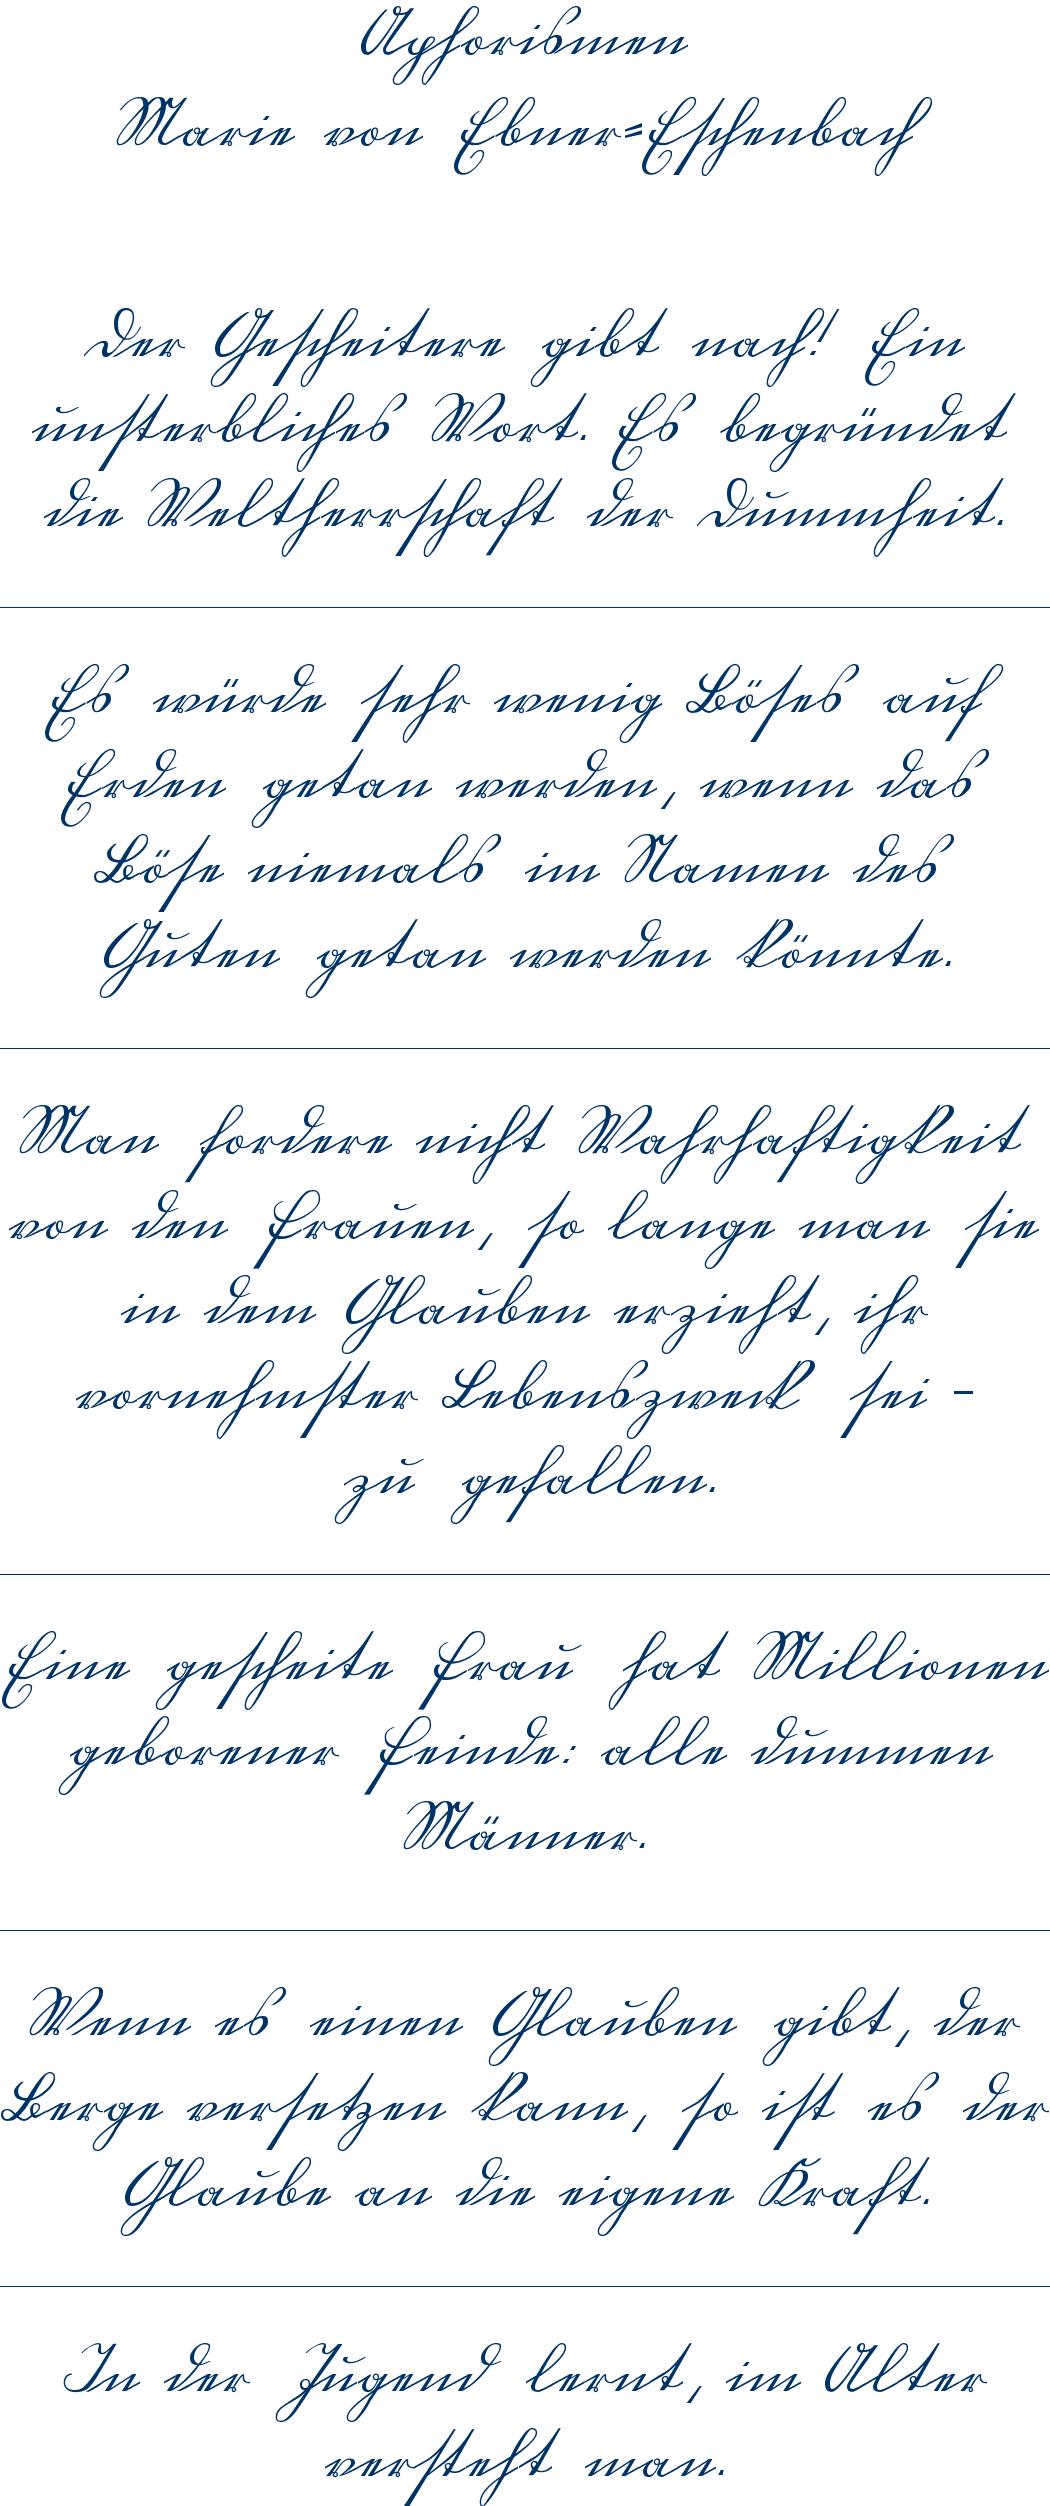 Aphorismen
Marie von Ebner=Eschenbach
Der Gescheitere gibt nach! Ein
unsterbliches Wort. Es begründet
die Weltherrschaft der Dummheit.
Es würde sehr wenig Böses auf
Erden getan werden, wenn das
Böse niemals im Namen des
Guten getan werden könnte.
Man fordere nicht Wahrhaftigkeit
von den Frauen, so lange man sie
in dem Glauben erzieht, ihr
vornehmster Lebenszweck sei -
zu gefallen.
Eine gescheite Frau hat Millionen
geborener Feinde: alle dummen
Männer.
Wenn es einen Glauben gibt, der
Berge versetzen kann, so ist es der
Glaube an die eigene Kraft.
In der Jugend lernt, im Alter
versteht man.